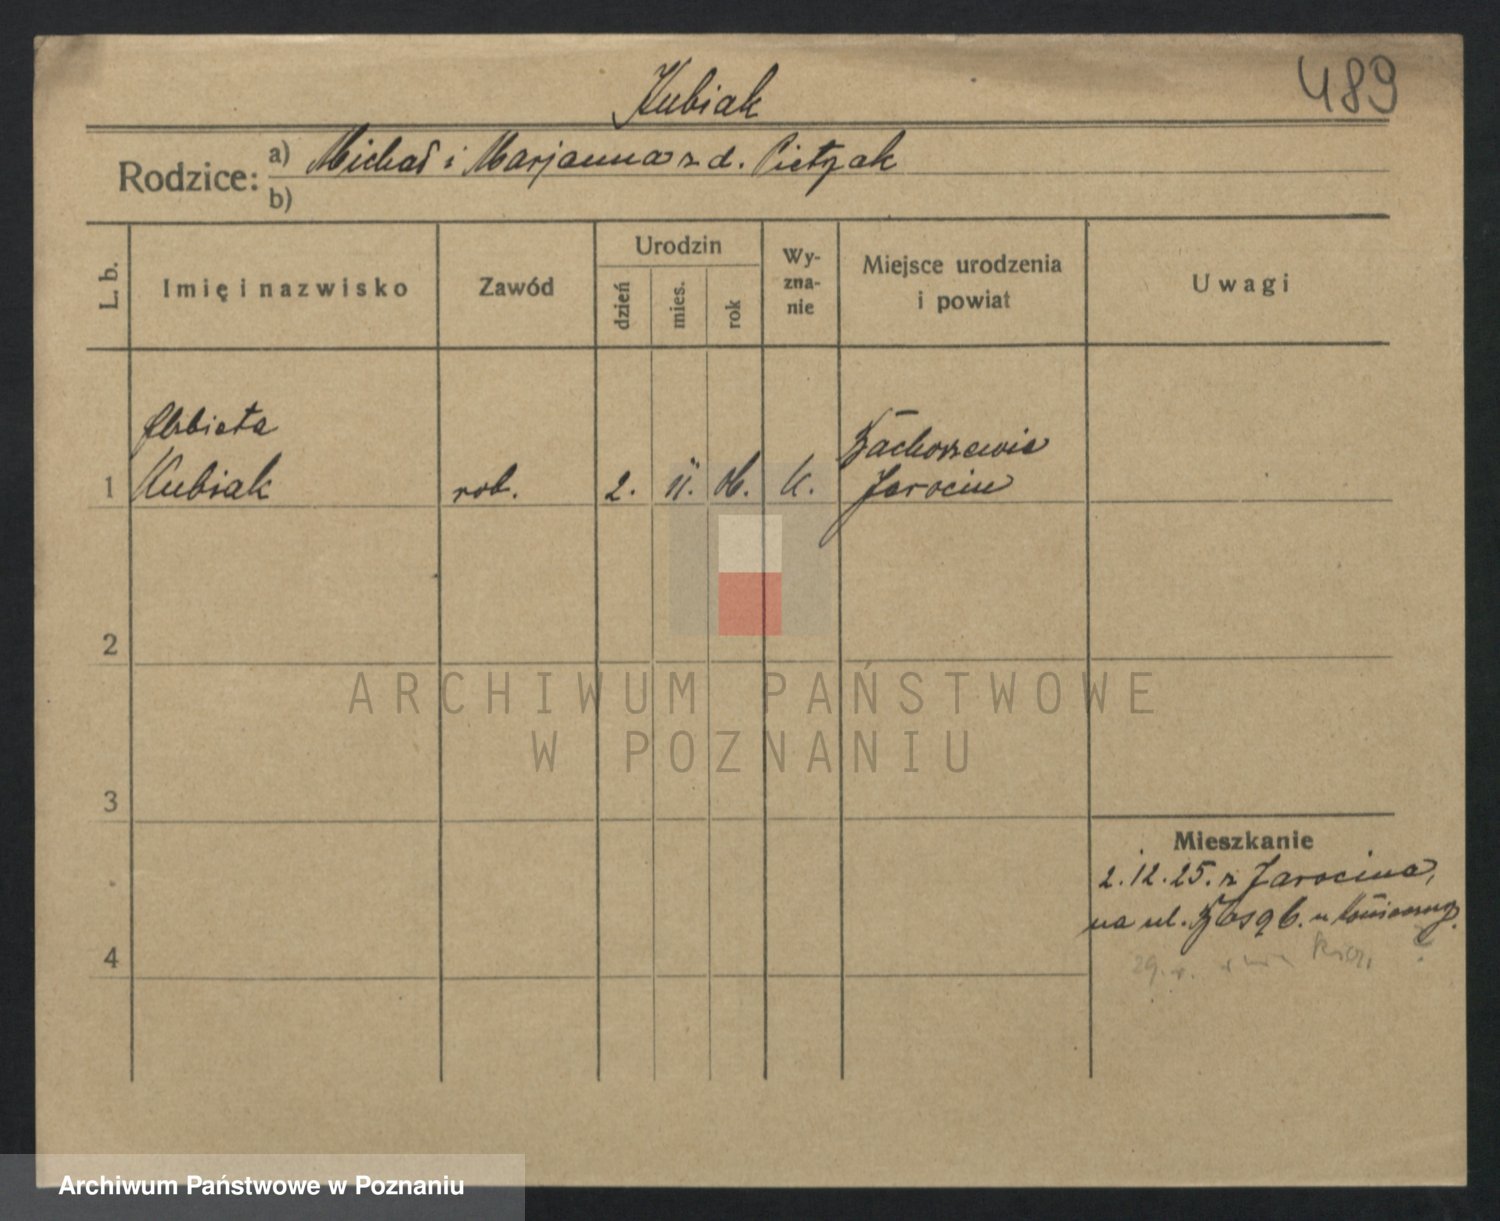 Kubiak
489
Rodzice: a) Michał i Marjanna z d. Pietrzak
b)
L. b.
Imię i nazwisko
Zawód
Urodzin
dzień
mies.
rok
Wy-
zna-
nie
Miejsce urodzenia
i powiat
Uwagi
Elżbieta
1 Kubiak rob. 2. 11. 06. k. Zachorzewie
Jarocin
2
ARCHIWUM PAŃSTWOWE
W POZNANIU
3
Mieszkanie
2.12.25. z Jarocina,
na ul.
4
29.
Archiwum Państwowe w Poznaniu